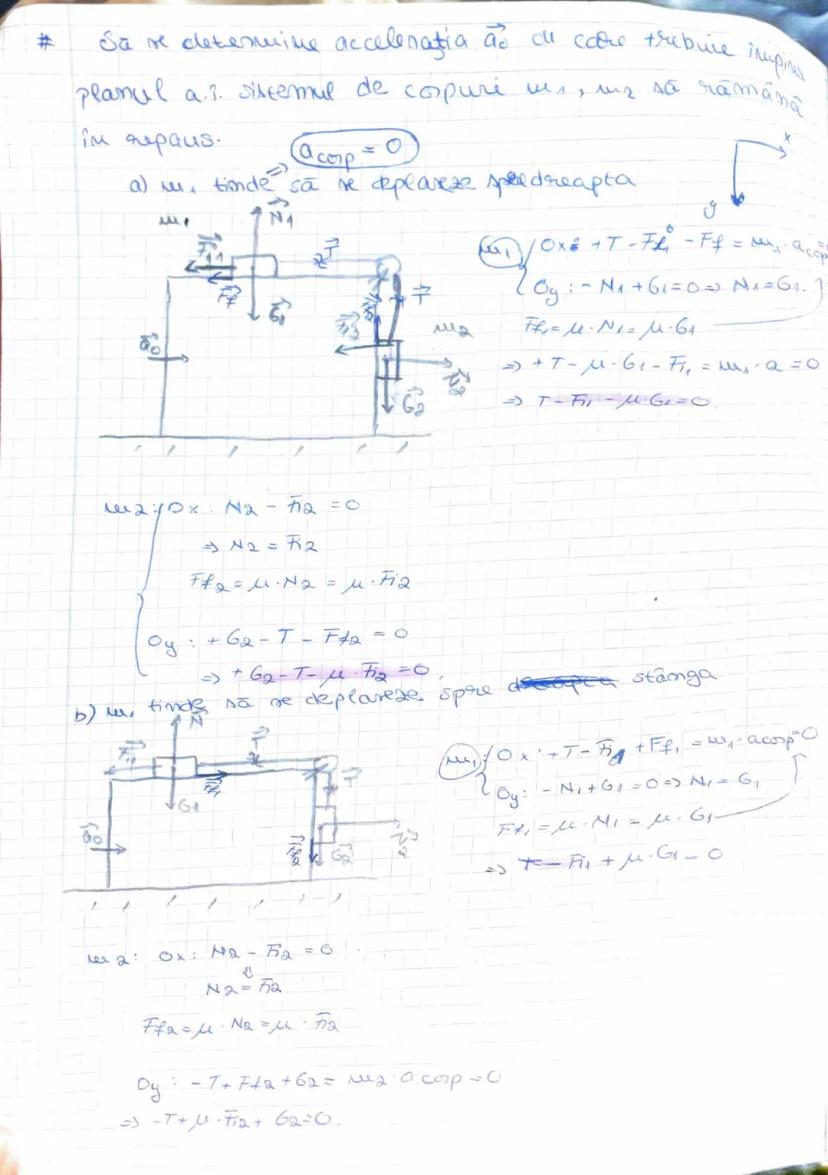 # Să se determine accelerația a⃗₀ cu care trebuie împins
planul a.î. sistemul de corpuri m₁, m₂ să rămână
în repaus.
a corp = 0
a) m₁ tinde să se deplaseze spre dreapta
x
y
m₁
N⃗₁
F⃗i1
T⃗
F⃗f
G⃗₁
T⃗
m₂
a⃗₀
N⃗₂
G⃗₂
m₁ { Ox: + T - Ff₁ - Fi = m₁ · a corp = 0
Oy: - N₁ + G₁ = 0 ⇒ N₁ = G₁
Ff₁ = μ · N₁ = μ · G₁
⇒ + T - μ · G₁ - Fi₁ = m₁ · a = 0
⇒ T - Fi₁ - μ G₁ = 0
m₂ : { Ox : N₂ - Fi₂ = 0
⇒ N₂ = Fi₂
Ff₂ = μ · N₂ = μ · Fi₂
Oy : + G₂ - T - Ff₂ = 0
⇒ + G₂ - T - μ · Fi₂ = 0
b) m₁ tinde să se deplaseze spre stânga
N⃗
F⃗i1
T⃗
G₁
F⃗f₁
T⃗
a⃗₀
F⃗f₂
G⃗₂
N⃗₂
m₁ : { Ox : + T - Fi₁ + Ff₁ = m₁ · a corp = 0
Oy : - N₁ + G₁ = 0 ⇒ N₁ = G₁
Ff₁ = μ · N₁ = μ · G₁
⇒ T - Fi₁ + μ · G₁ = 0
m₂ : Ox : N₂ - Fi₂ = 0
⇓
N₂ = Fi₂
Ff₂ = μ · N₂ = μ · Fi₂
Oy : - T + Ff₂ + G₂ = m₂ · a corp = 0
⇒ - T + μ · Fi₂ + G₂ = 0.